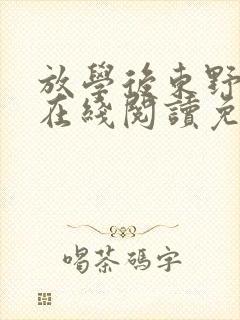 放學後東野
在綫閱讀免
喝茶碼字